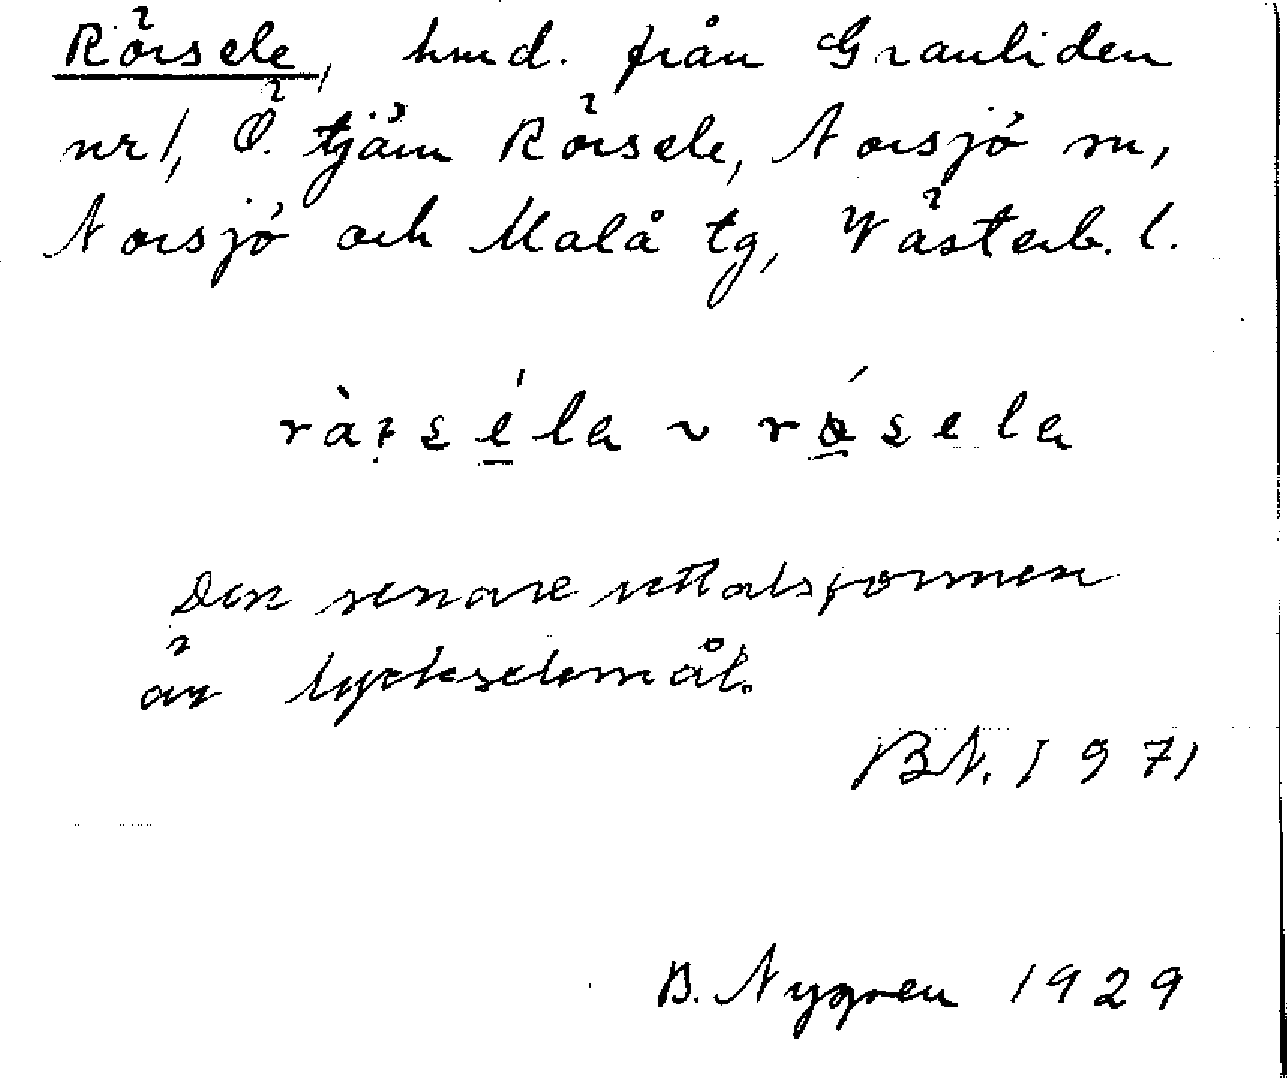 Rörsele, hmd. från Granliden
nr 1, Ö. tjäm Rörsele, Norsjö sn,
Norsjö och Malå tg, Västerb. l.
Den senare uttalsformen
är lyckselemål.
BN. 1971
B. Nygren 1929